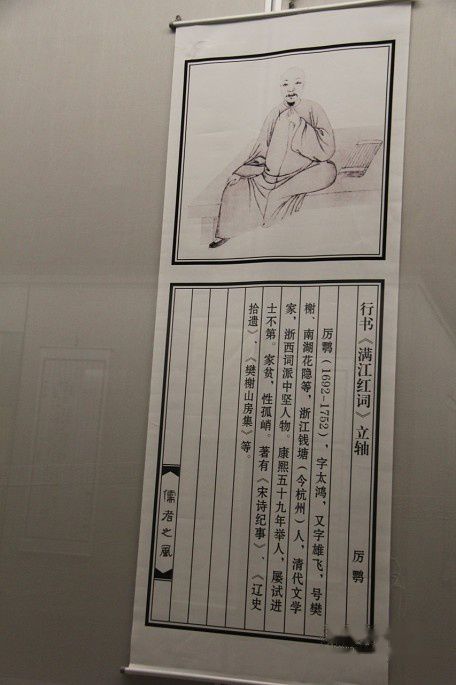 行书《满江红词》立轴
厉鹗
厉鹗（1692-1752），字太鸿，又字雄飞，号樊
榭、南湖花隐等，浙江钱塘（今杭州）人，清代文学
家，浙西词派中坚人物。康熙五十九年举人，屡试进
士不第。家贫，性孤峭。著有《宋诗纪事》、《辽史
拾遗》、《樊榭山房集》等。
儒者之风